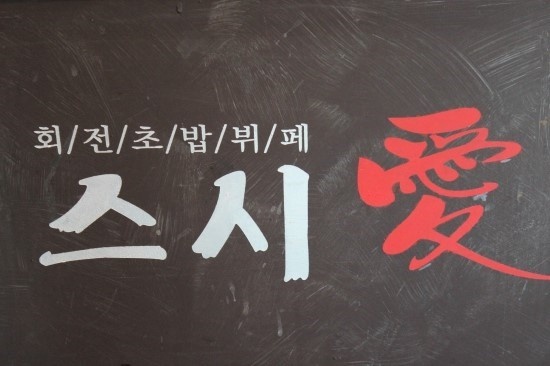 회/전/초/밥/뷔/페
스시愛